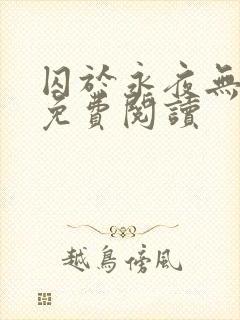 囚於永夜無
免費閱讀
越鳥傍風